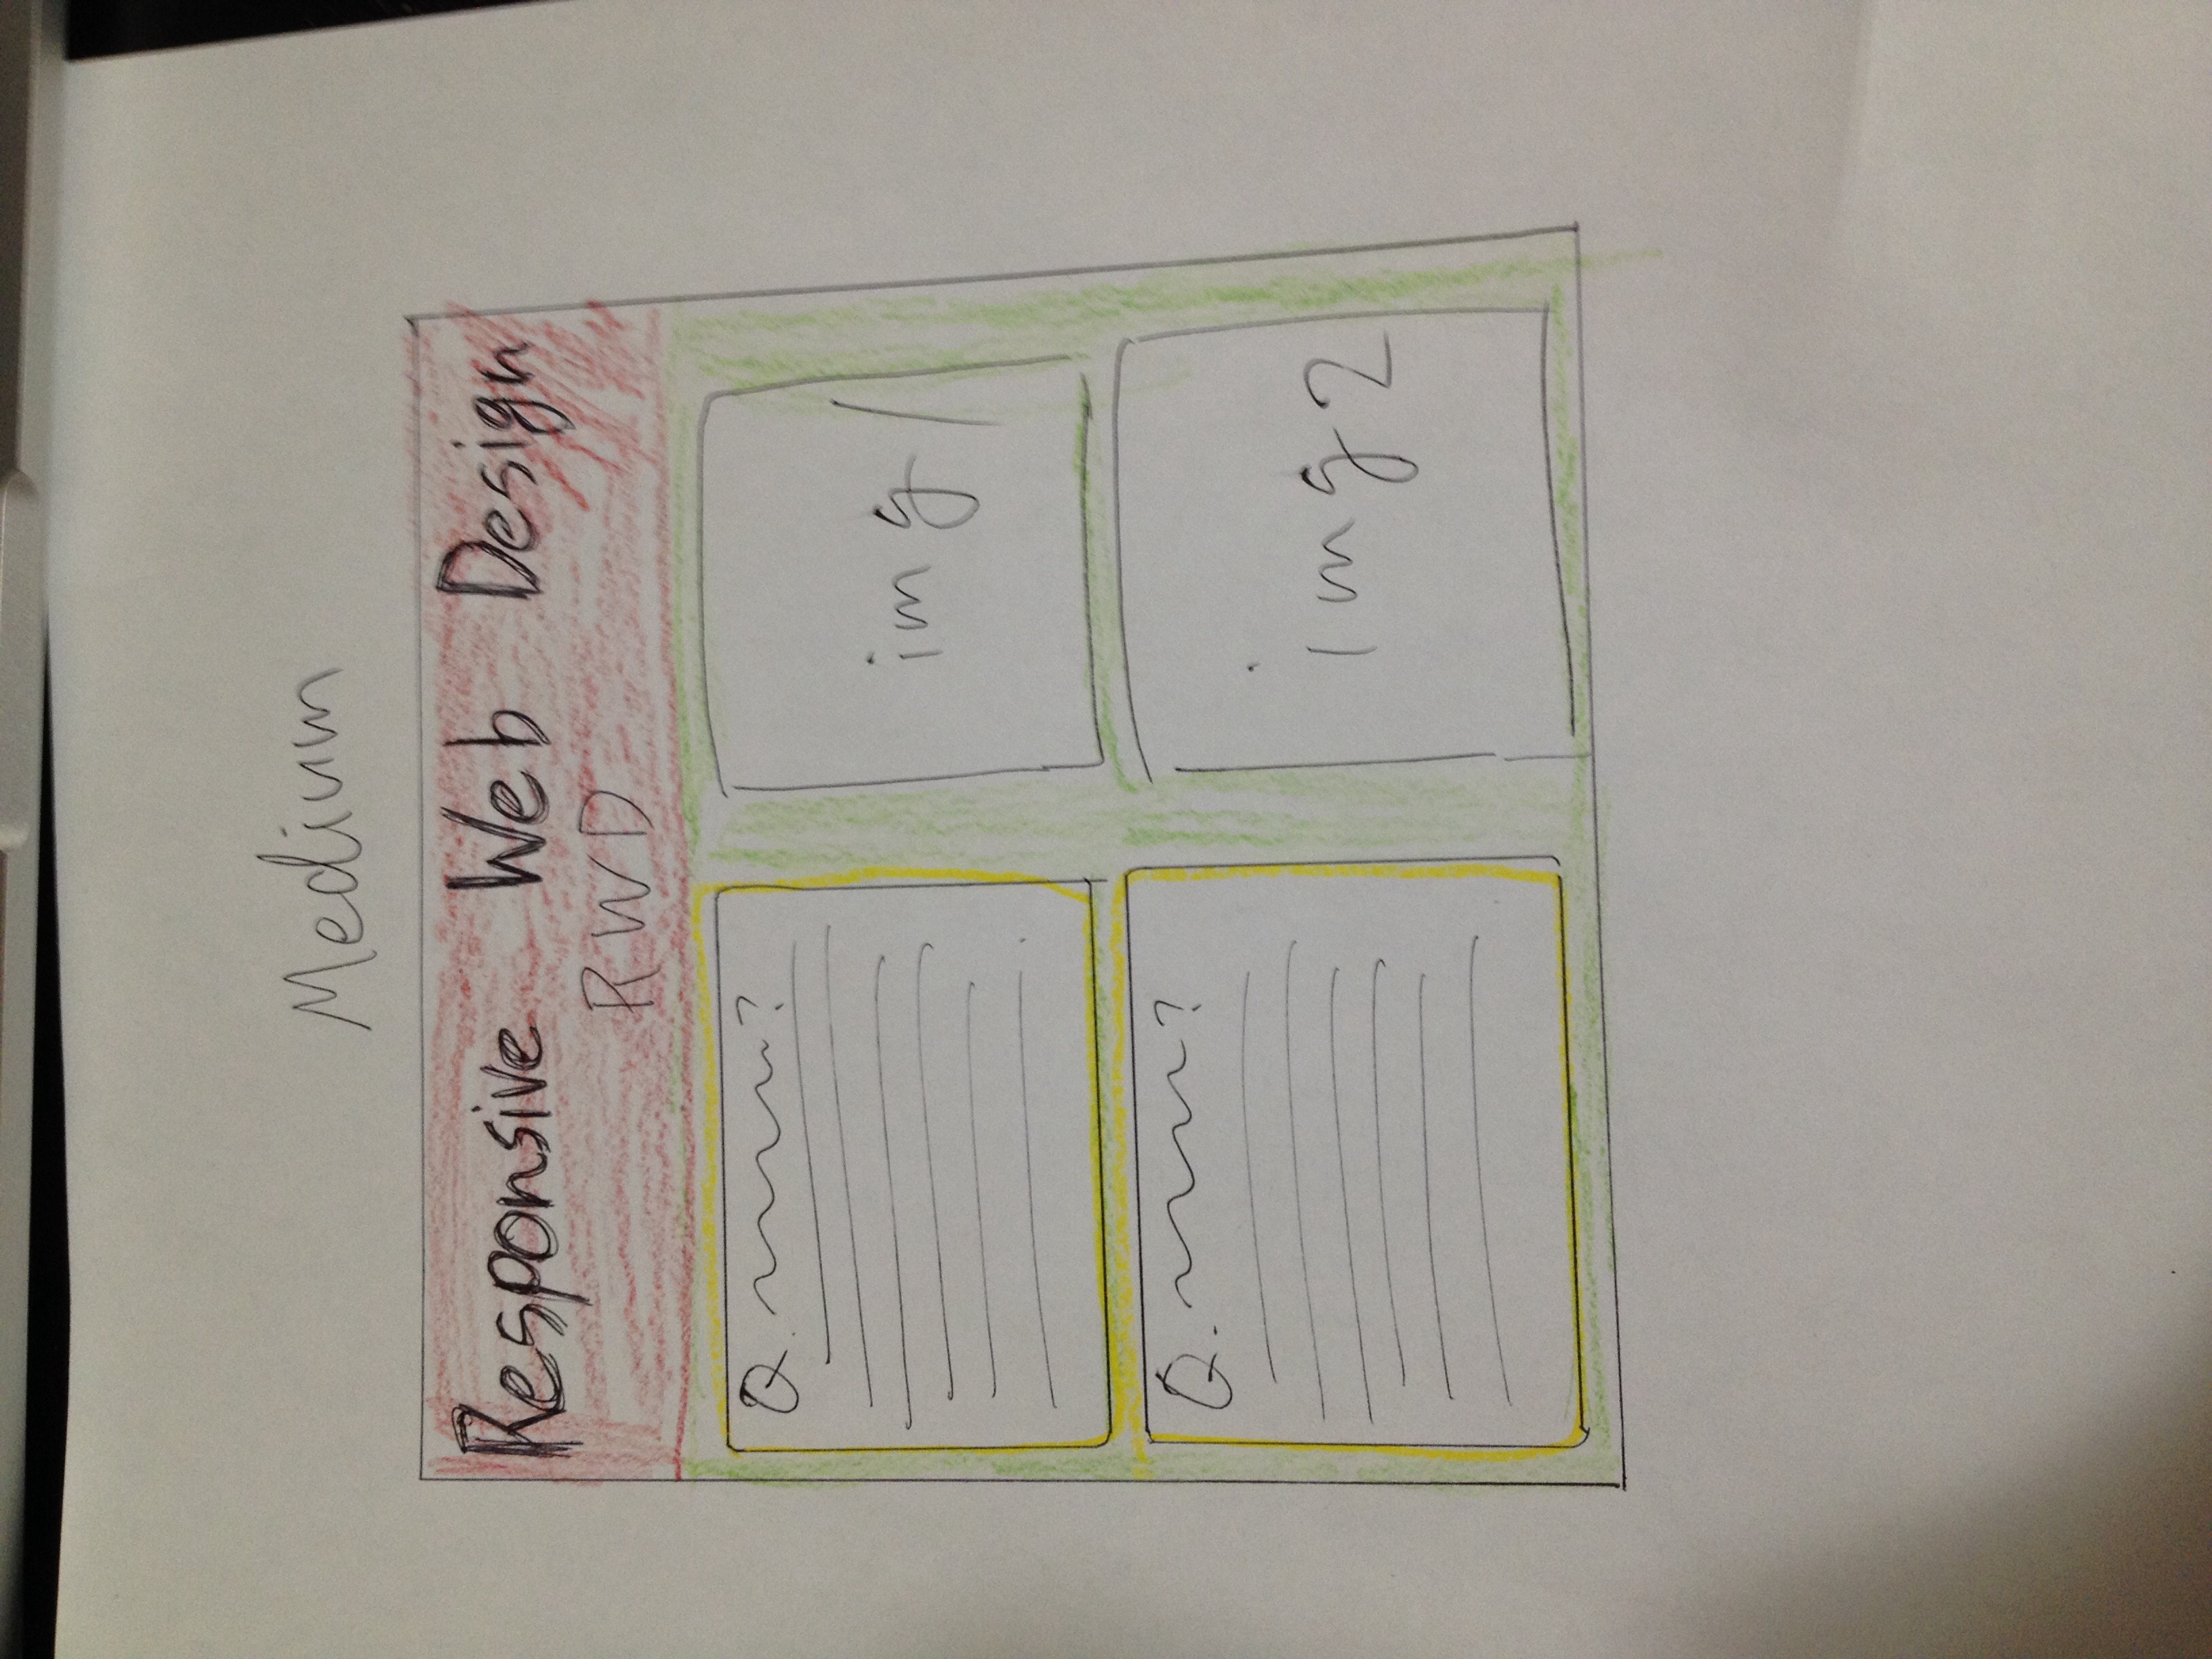 Medium
Responsive Web Design
RWD
Q. ?
img 1
Q. ?
img 2